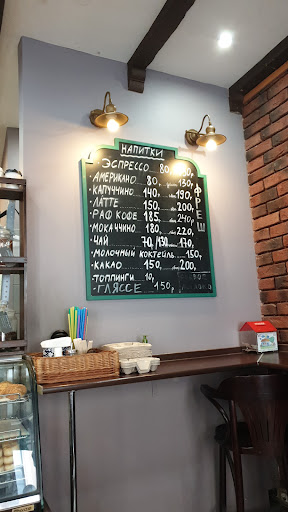 НАПИТКИ
- ЭСПРЕССО 80,
- АМЕРИКАНО 80, 130,
- КАПУЧЧИНО 140, 190,
- ЛАТТЕ 150, 200,
- РАФ КОФЕ 185, 240,
- МОКАЧЧИНО 180, 220,
- ЧАЙ 70,/130, 170,
- МОЛОЧНЫЙ КОКТЕЙЛЬ 150,
- КАКАО 150, 200,
- ТОППИНГИ 10,
- ГЛЯССЕ 150,
ФРЕШ